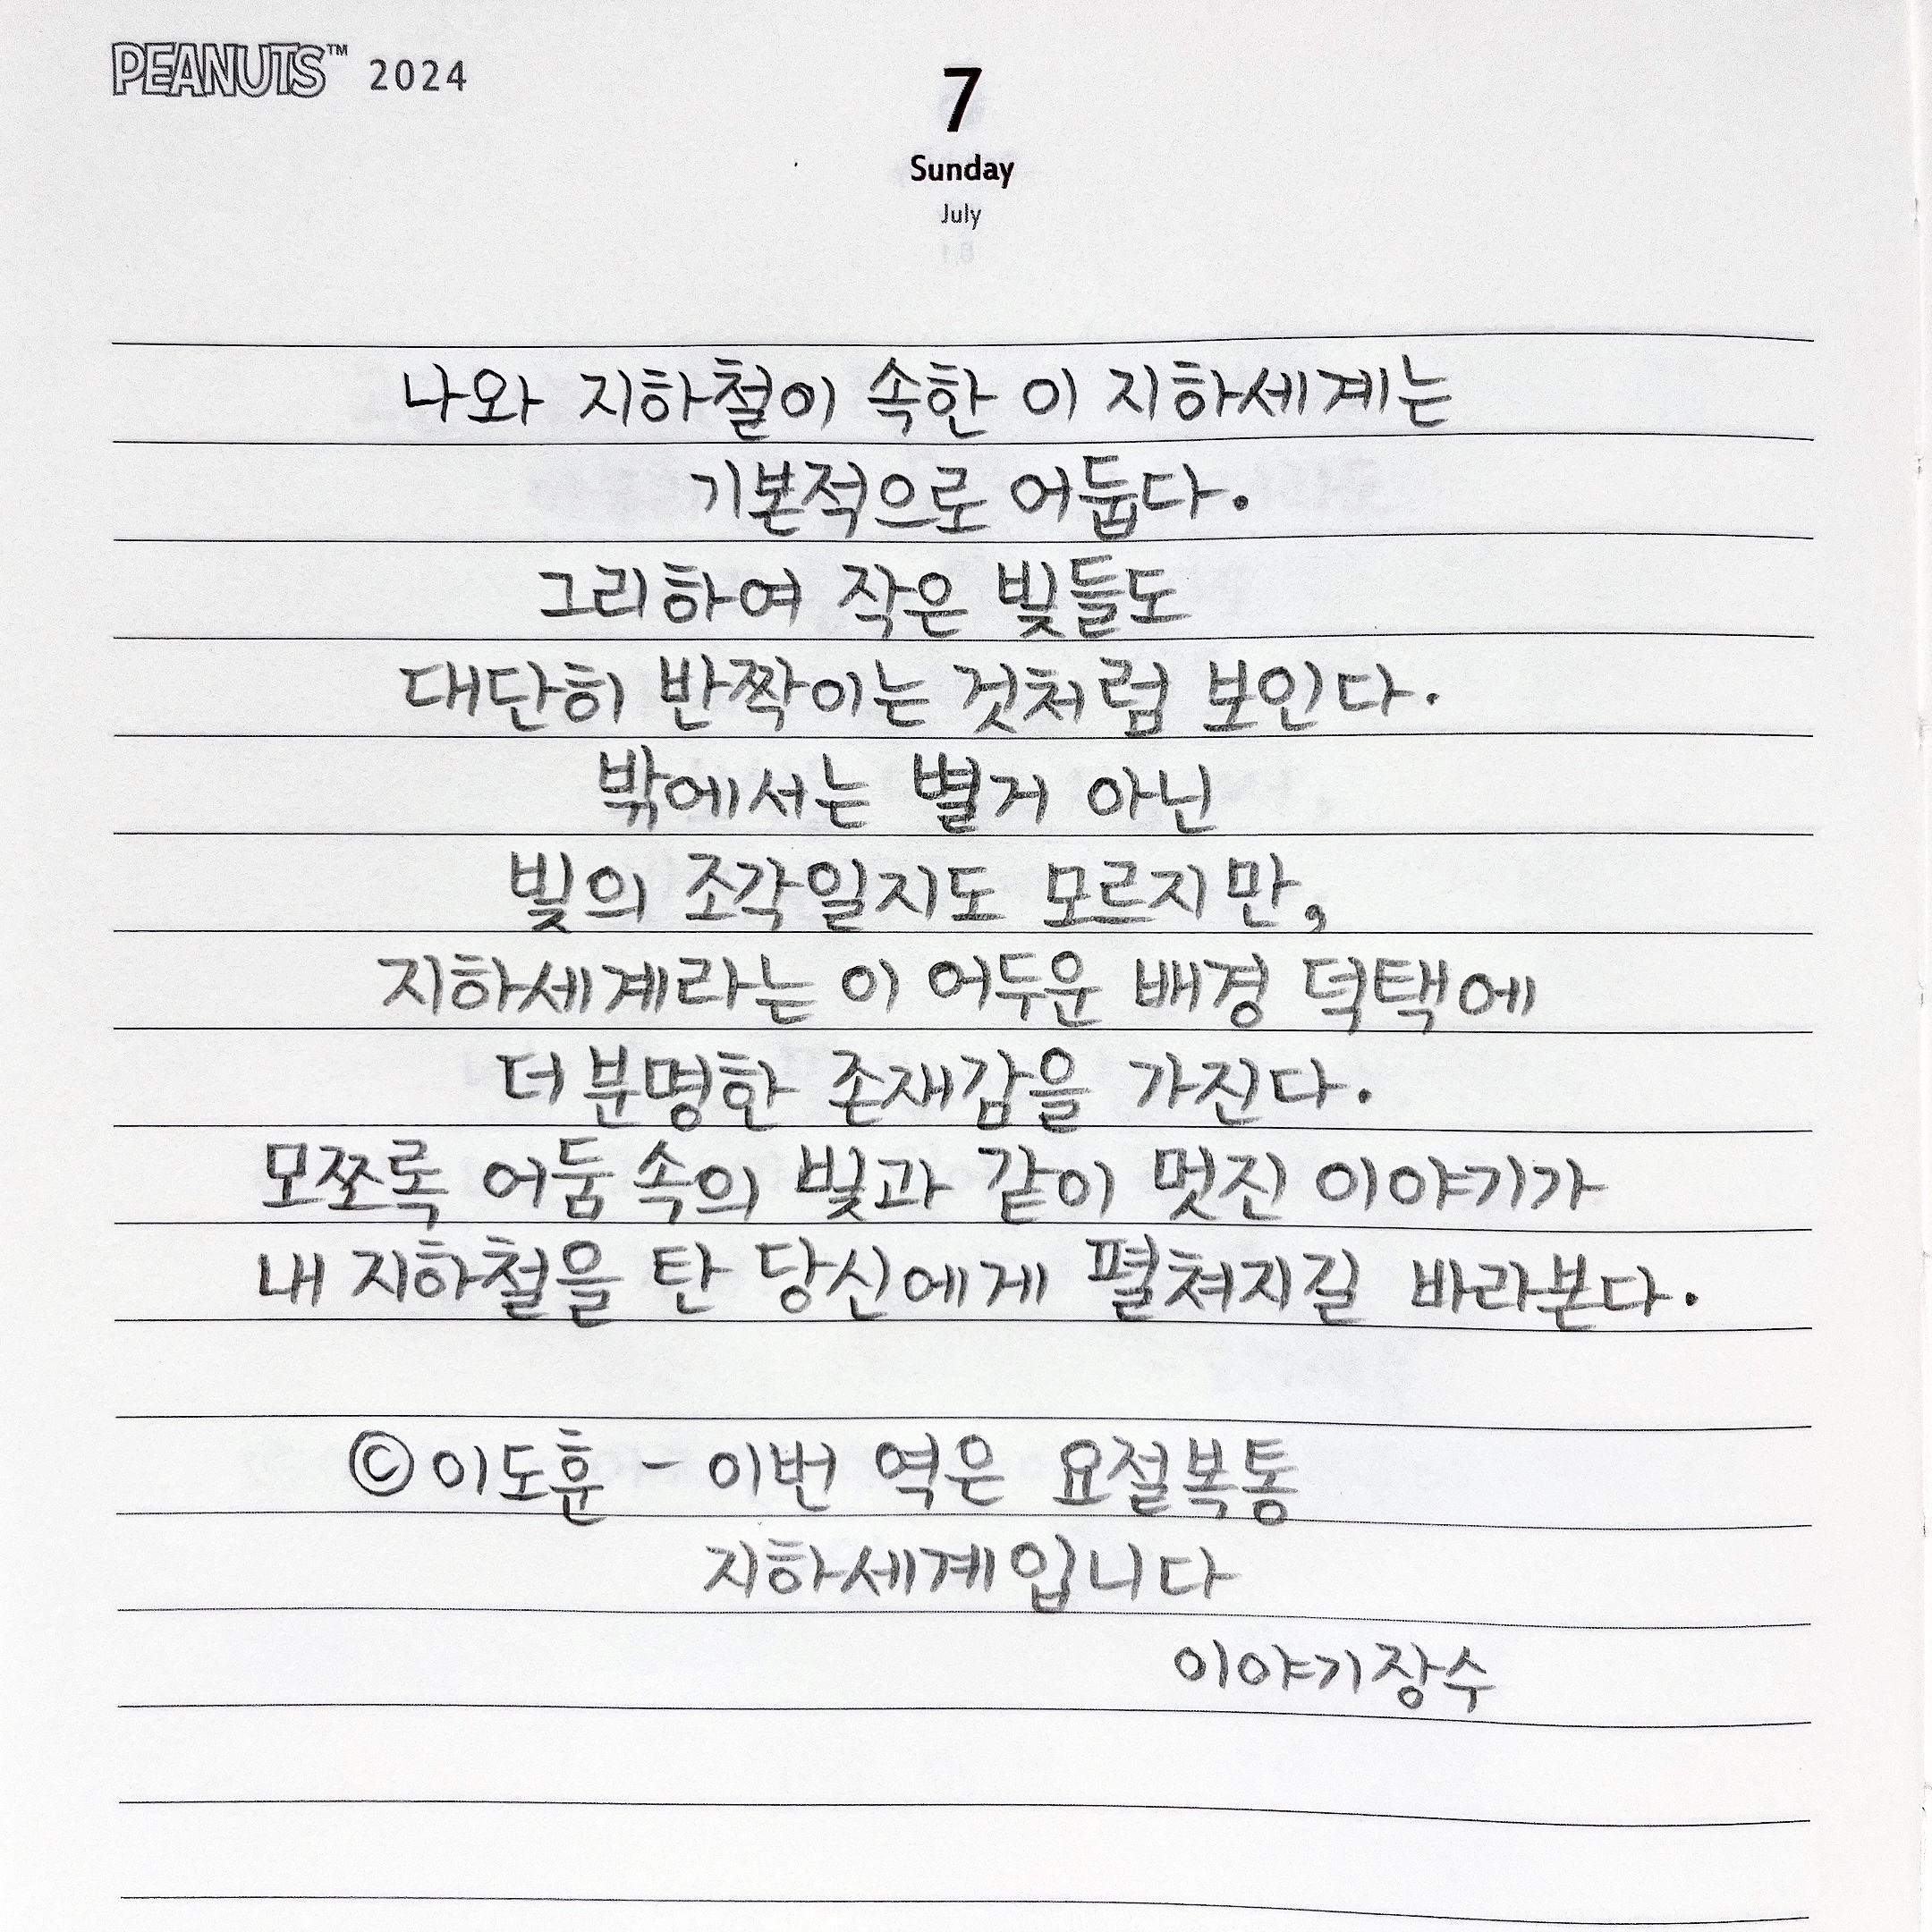 PEANUTS™ 2024
7
Sunday
July
나와 지하철이 속한 이 지하세계는
기본적으로 어둡다.
그리하여 작은 빛들도
대단히 반짝이는 것처럼 보인다.
밖에서는 별거 아닌
빛의 조각일지도 모르지만,
지하세계라는 이 어두운 배경 덕택에
더 분명한 존재감을 가진다.
모쪼록 어둠 속의 빛과 같이 멋진 이야기가
내 지하철을 탄 당신에게 펼쳐지길 바라본다.
©이도훈 - 이번 역은 요절복통
지하세계입니다
이야기장수